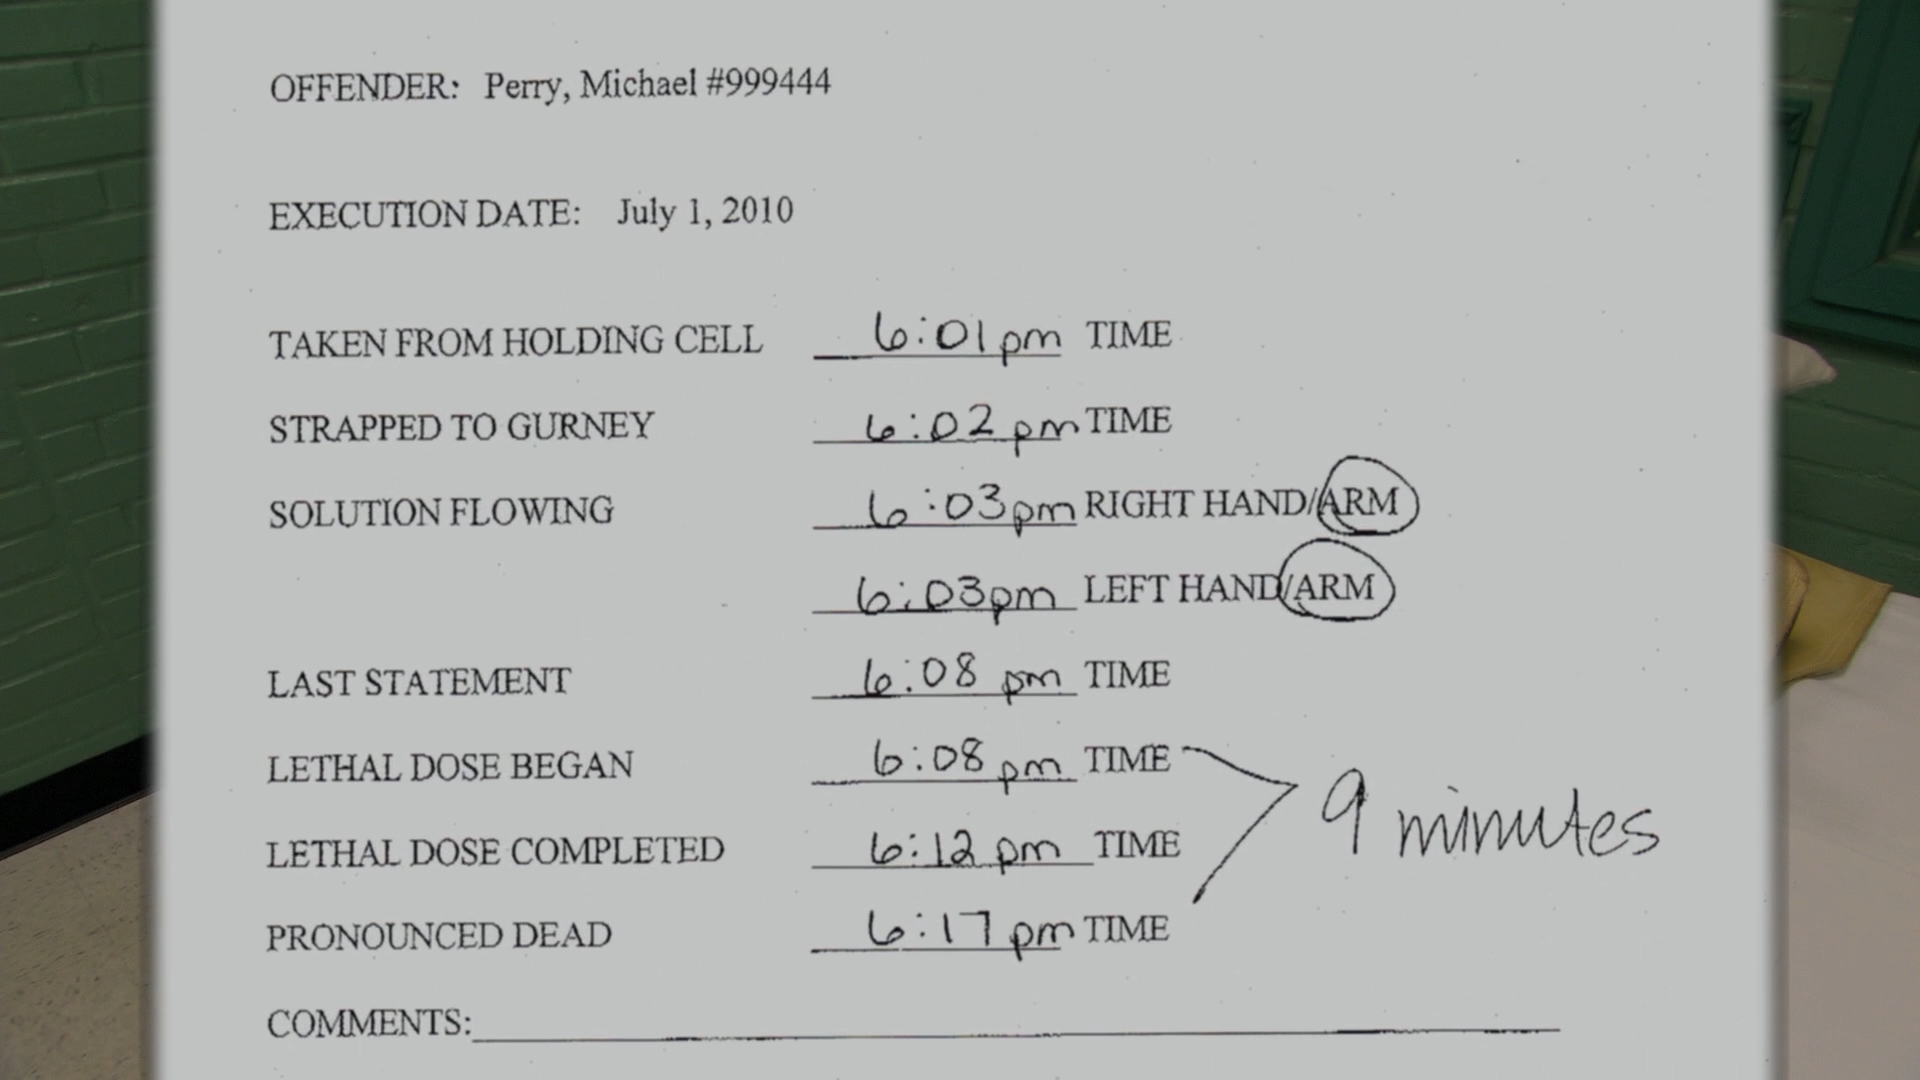 OFFENDER: Perry, Michael #999444
EXECUTION DATE: July 1, 2010
TAKEN FROM HOLDING CELL 6:01pm TIME
STRAPPED TO GURNEY 6:02 pm TIME
SOLUTION FLOWING 6:03pm RIGHT HAND/ARM
6:03pm LEFT HAND/ARM
LAST STATEMENT 6:08 pm TIME
LETHAL DOSE BEGAN 6:08 pm TIME
9 minutes
LETHAL DOSE COMPLETED 6:12 pm TIME
PRONOUNCED DEAD 6:17 pm TIME
COMMENTS: